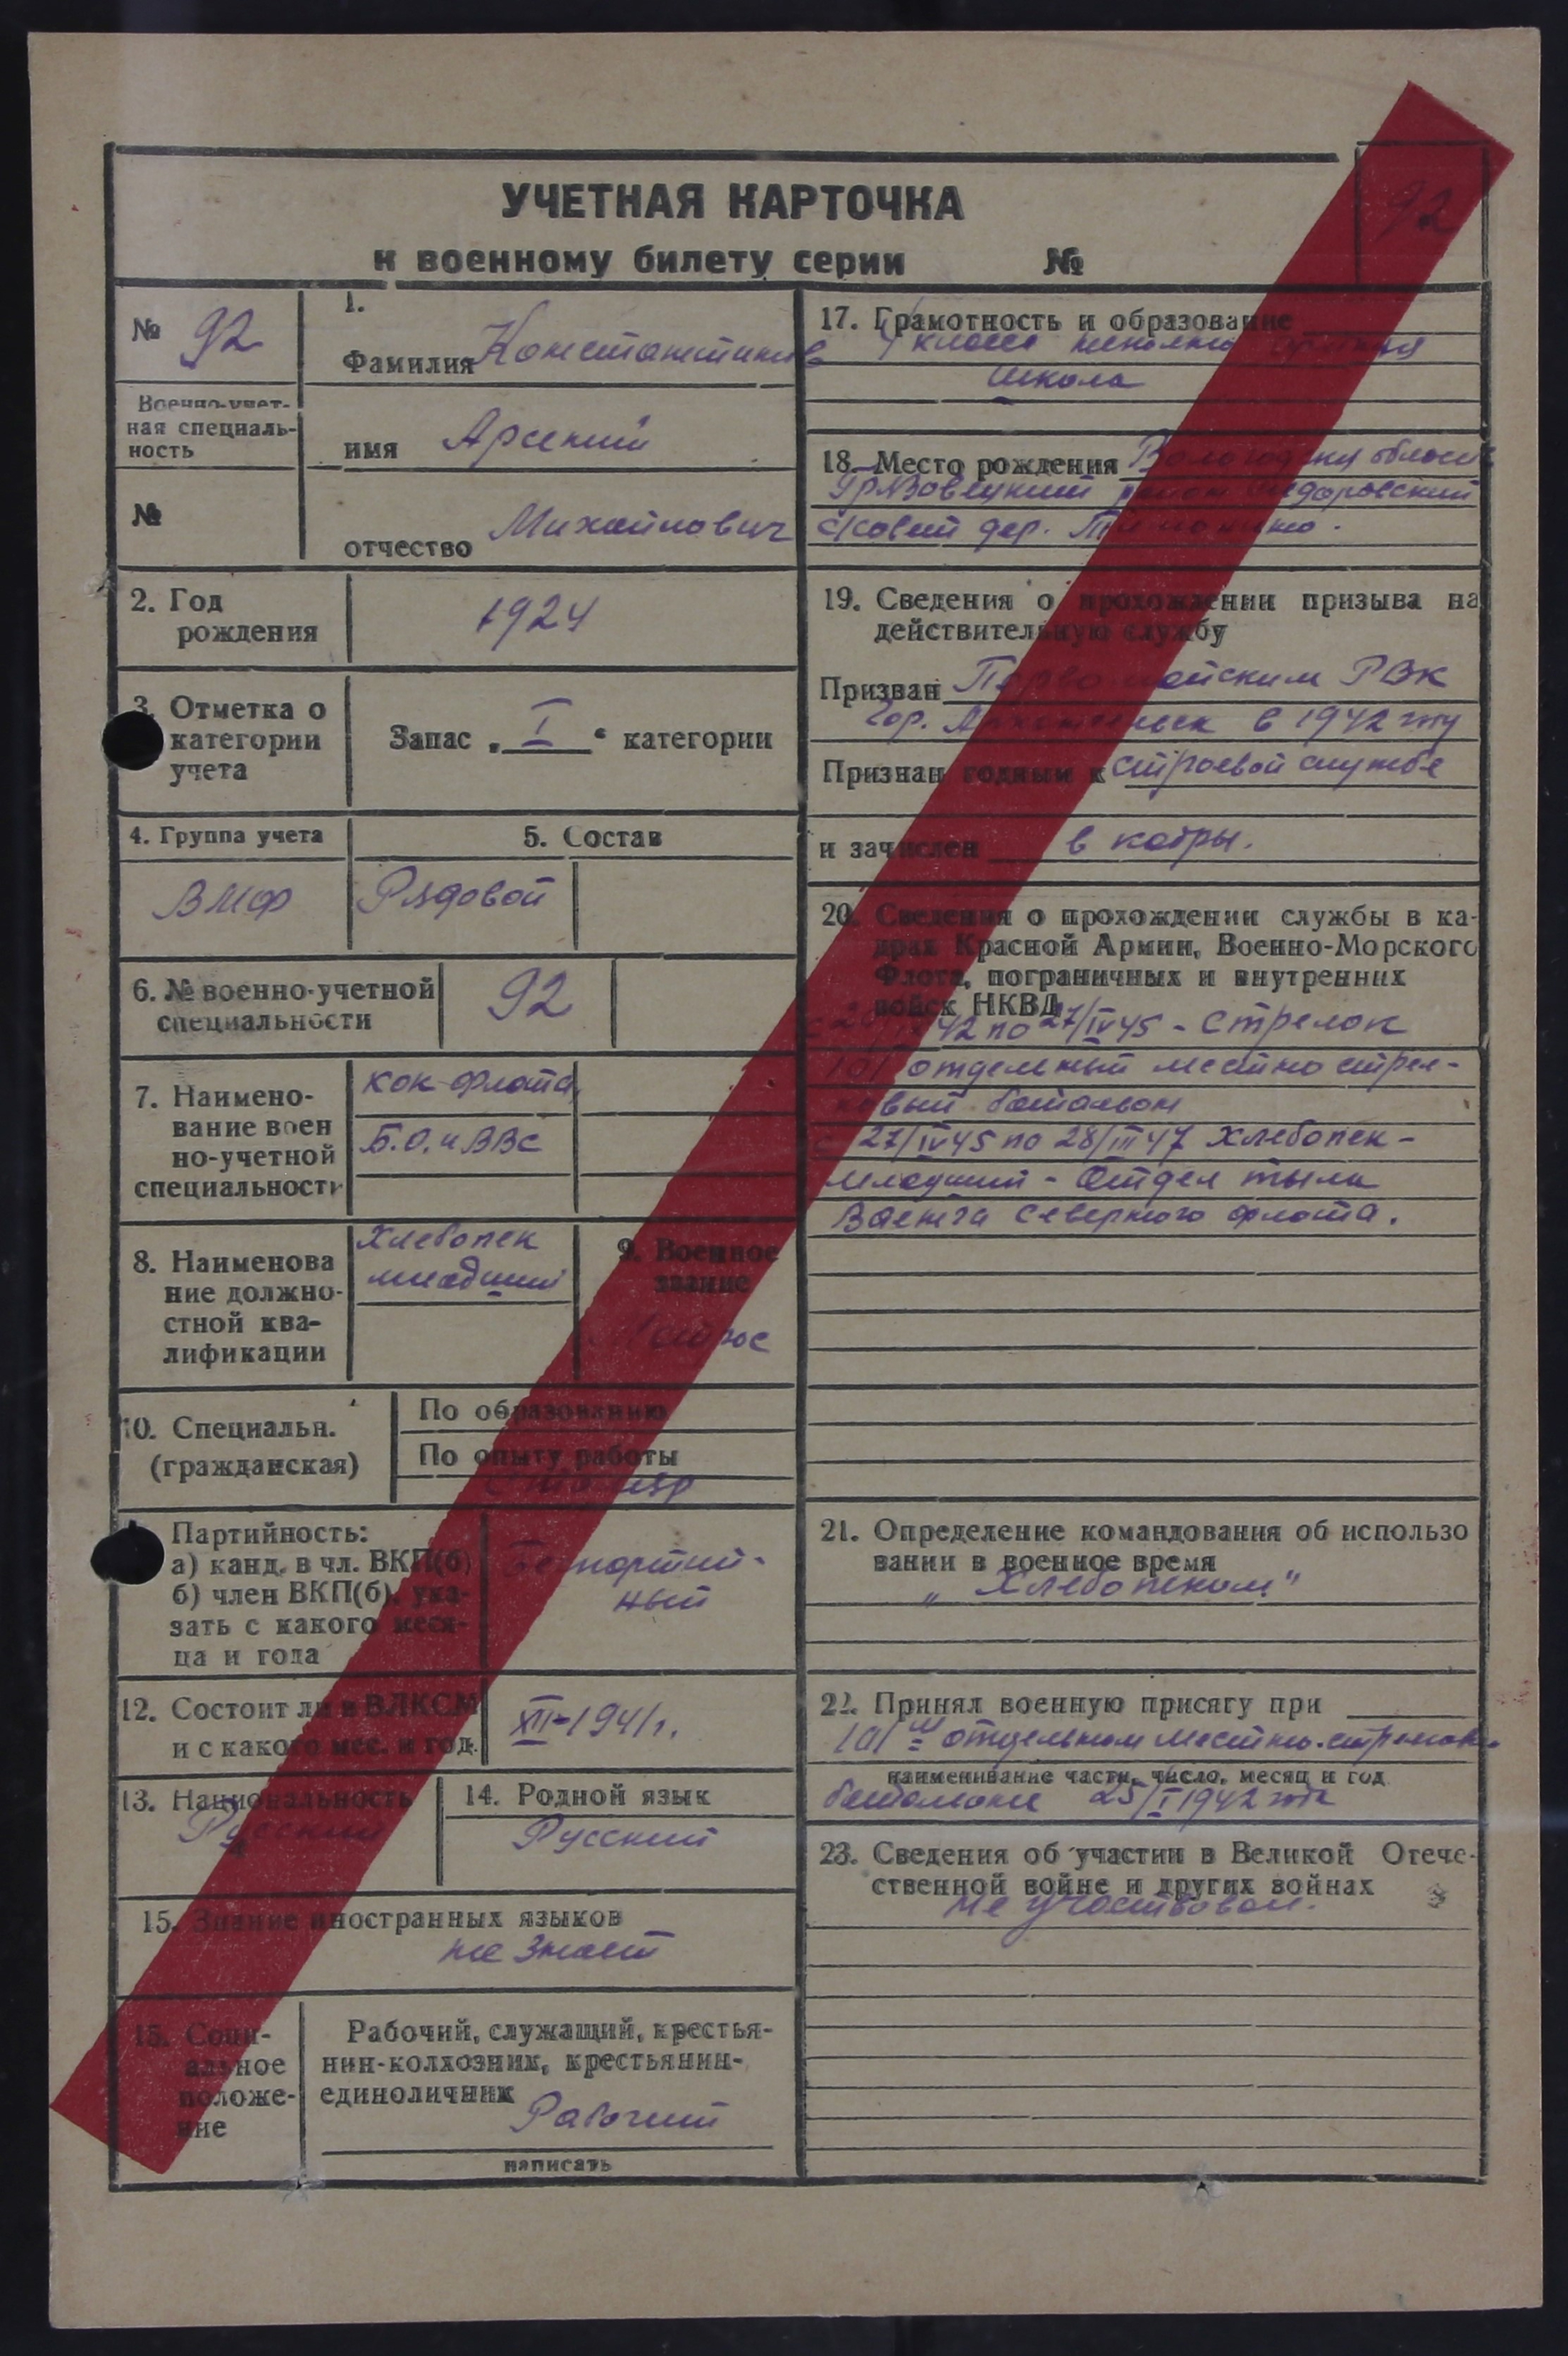 92
УЧЕТНАЯ КАРТОЧКА
к военному билету серии №
№ 92
Военно-учет-
ная специаль-
ность
№
1.
Фамилия Константинов
имя Арсений
отчество Михайлович
2. Год
рождения
1924
3. Отметка о
категории
учета
Запас „ I “ категории
4. Группа учета
ВМФ
5. Состав
Рядовой
6. № военно-учетной
специальности
92
7. Наимено-
вание воен
но-учетной
специальности
кок флота,
Б.О. и ВВС
8. Наименова
ние должно-
стной ква-
лификации
Хлебопек
младший
9. Военное
звание
Матрос
10. Специальн.
(гражданская)
По образованию
По опыту работы
Столяр
Партийность:
а) канд. в чл. ВКП(б)
б) член ВКП(б), ука-
зать с какого меся-
ца и года
Беспартий-
ный
12. Состоит ли в ВЛКСМ
и с какого мес. и год.
XII-1941г.
13. Национальность
Русский
14. Родной язык
Русский
15. Знание иностранных языков
не знает
15. Соци-
альное
положе-
ние
Рабочий, служащий, крестья-
нин-колхозник, крестьянин-
единоличник
Рабочий
написать
17. Грамотность и образование
4 класса неполно средняя
школа
18. Место рождения Вологодская област
Грязовецкий район Сидоровский
с/совет дер.
19. Сведения о прохождении призыва на
действительную службу
Призван Первомайским РВК
гор. Архангельск в 1942 году
Признан годным к строевой службе
и зачислен в кадры.
20. Сведения о прохождении службы в ка-
драх Красной Армии, Военно-Морского
Флота, пограничных и внутренних
войск НКВД
42 по 27/IV 45 - Стрелок
101 отдельный местно стрел-
ковый батальон
с 27/IV 45 по 28/III 47 Хлебопек-
младший - Отдел тыла
Ваенга Северного флота.
21. Определение командования об использо
вании в военное время
„ Хлебопеком"
22. Принял военную присягу при
101 ом отдельном местно-стрелков.
наименивание части, число, месяц и год
батальоне 25/I 1942 года
23. Сведения об участии в Великой Отече-
ственной войне и других войнах
не участвовал.